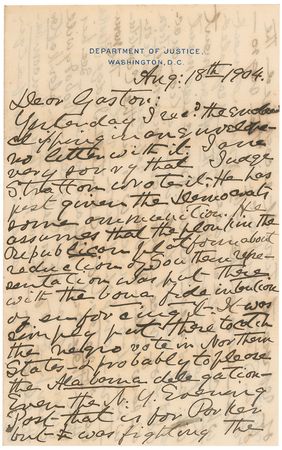 DEPARTMENT OF JUSTICE.
WASHINGTON, D.C.
Aug: 18th 1904.
Dear Gaston:
Yesterday I rec'd the enclosed
clipping in an envelope—
no letter with it. I am
very sorry that Judge
Stratton wrote it. He has
just given the Democrats
some ammunition. He
assumes that the plank in the
Republican platform about
reduction of Southern repre-
sentation was put there
with the bona fide intention
of enforcing it. It was
simply put there to catch
the negro vote in Northern
States—& probably to please
the Alabama delegation—
Even the N.Y. Evening
Post that is for Parker
but was fighting the